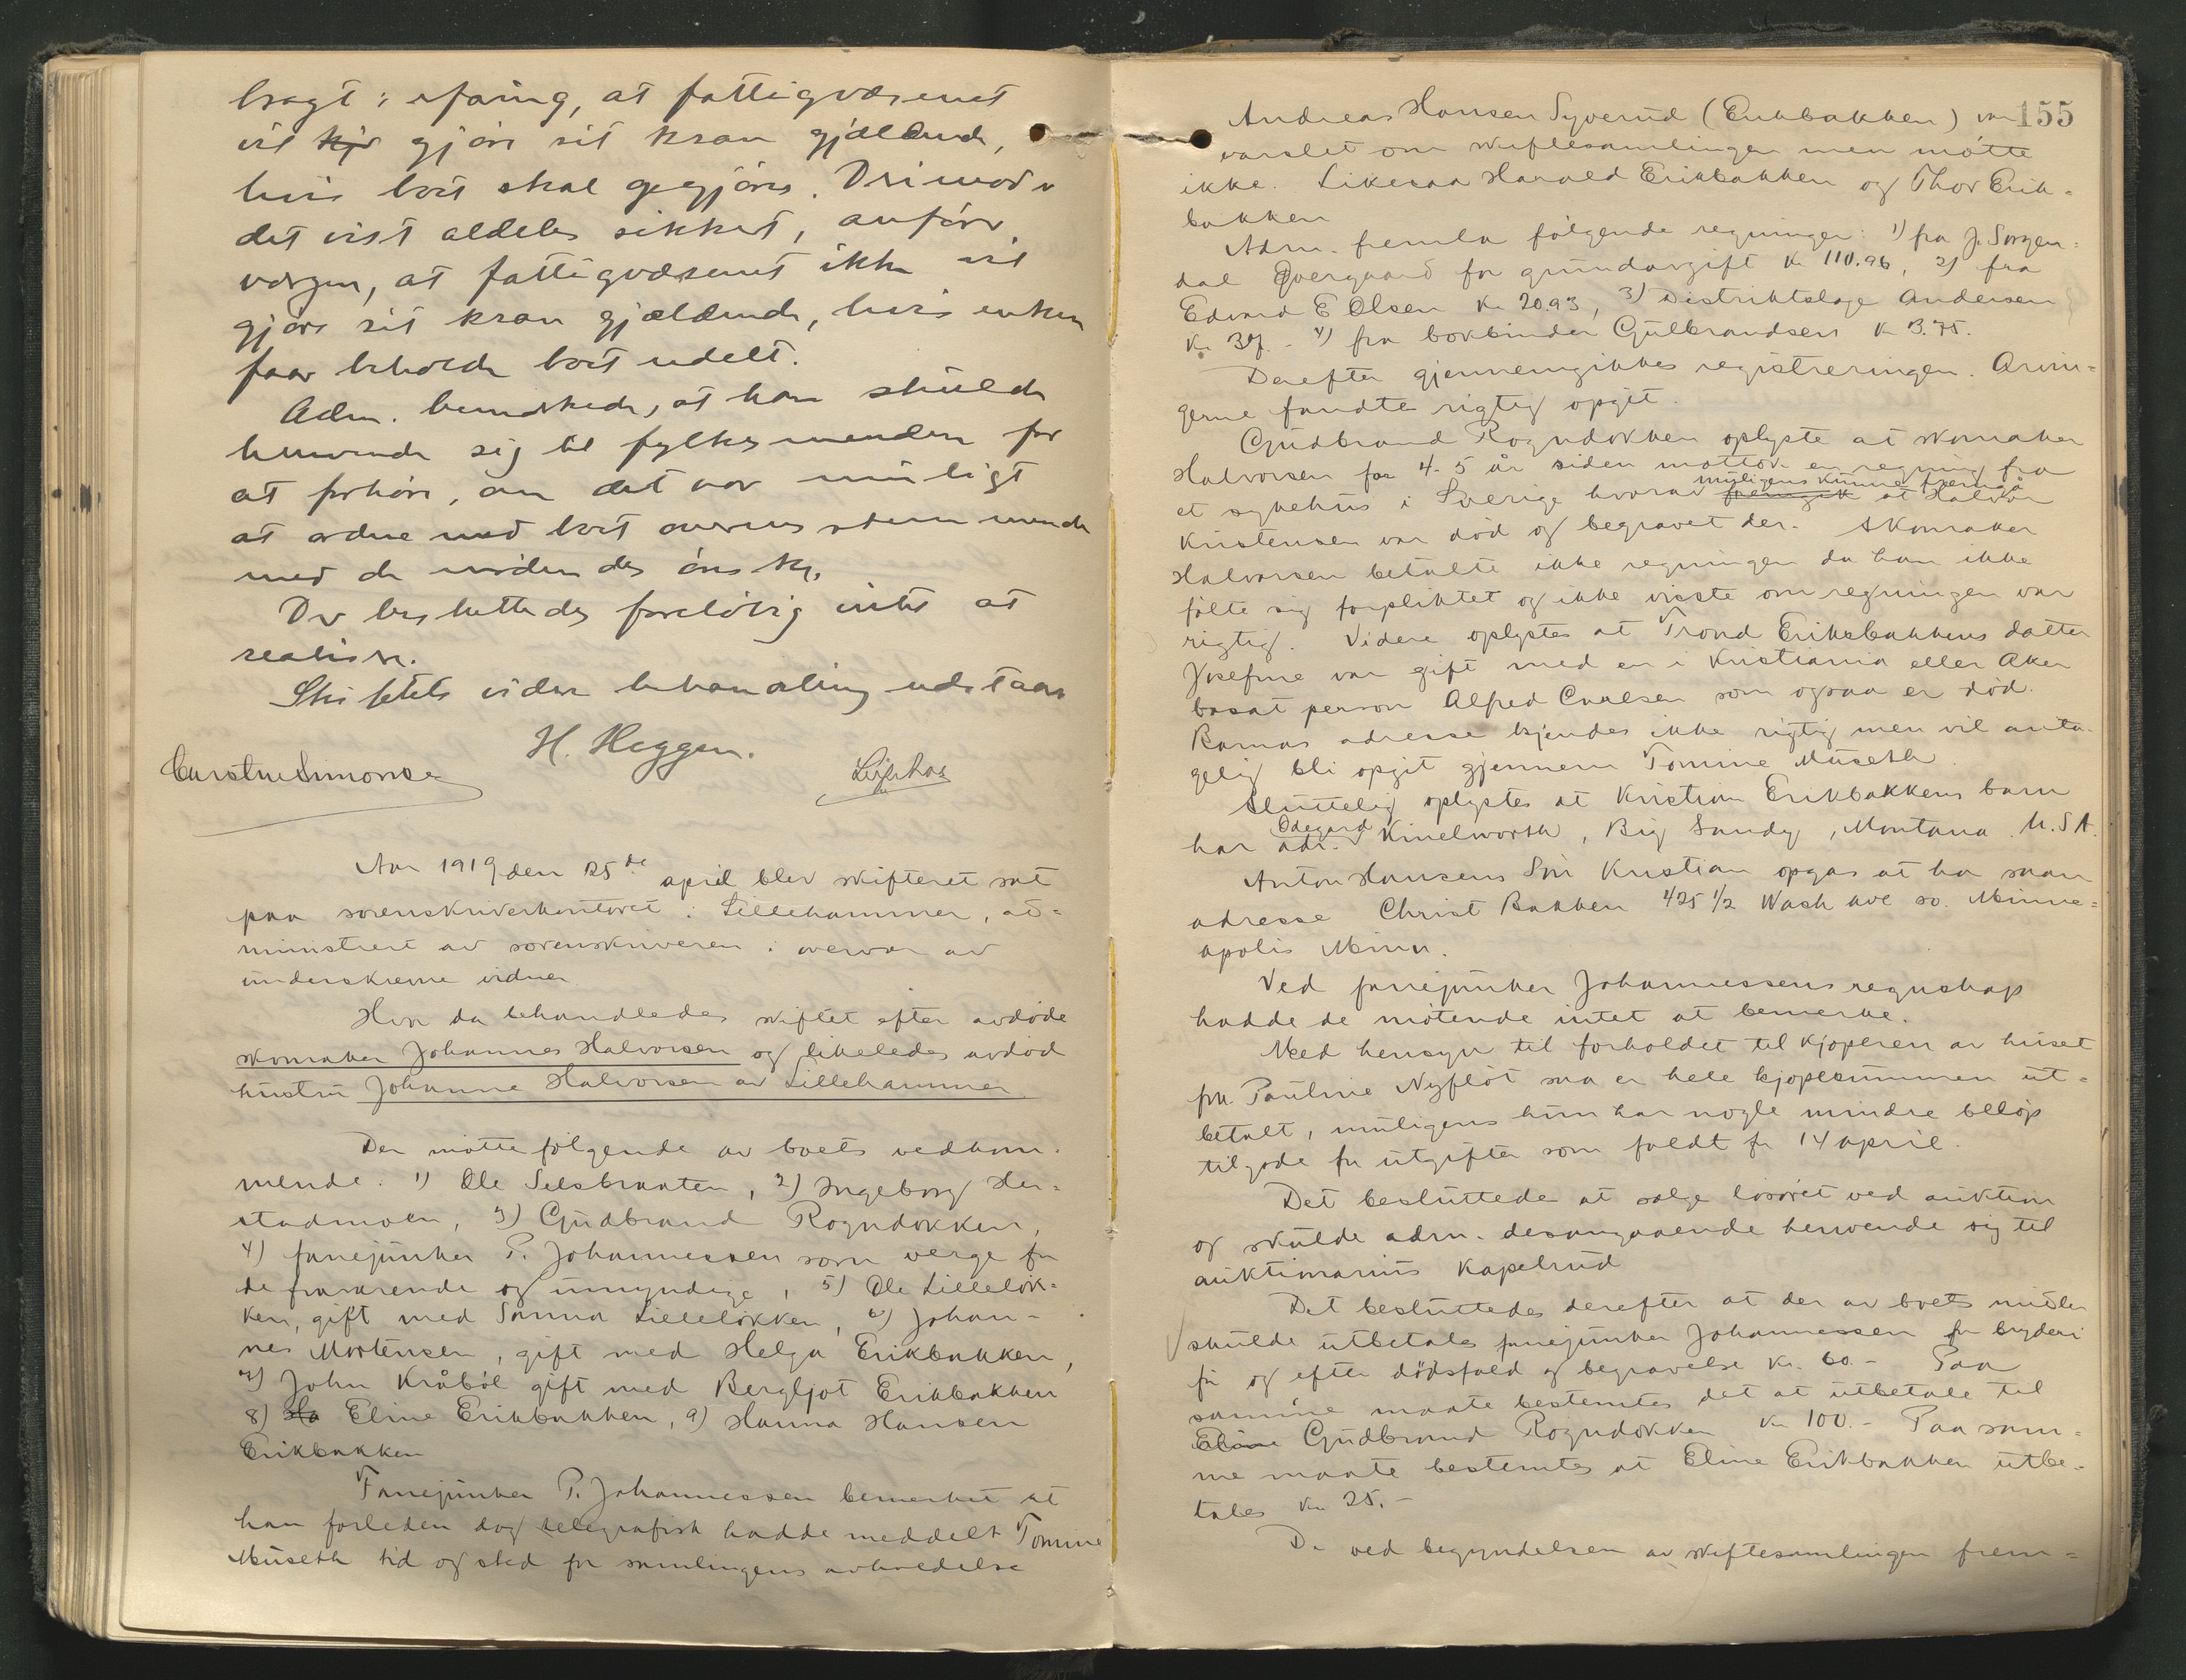 bragt i erfaring, at fattigvæsenet
vil gjøre sit krav gjældende,
hvis boet skal gjøres. Derimod er
det vist aldeles sikkert, anfører
vergen, at fattigvæsenet ikke vil
gjøre sit krav gjældende, hvis enken
faar beholde boet udelt.
Adm. bemerkede, at han skulde
henvende sig til fylkesmanden for
at forhøre, om det var muligt
at ordne med boet overensstemmende
med de mødendes ønske.
Der besluttedes foreløbig intet at
realisere.
Skiftets videre behandling udstaar
H. Heggen.
Aar 1919 den 25de april blev skifteret sat
paa sorenskriverkontoret i Lillehammer, ad=
ministrert av sorenskriveren i overvær av
underskrevne vidner
Hvor da behandledes skiftet efter avdøde
skomaker Johannes Halvorsen og likeledes avdød
hustru Johanne Halvorsen av Lillehammer
Der møtte følgende av boets vedkom-
mende: 1) Ole Selsbraaten, 2) Ingeborg Her-
stadmoen, 3) Gudbrand Rogndokken,
4) fanejunker P. Johannessen som verge for
de fraværende og umyndige, 5) Ole Lilleløk=
ken, gift med Sanna Lilleløkken, 6) Johan-
nes Mortensen, gift med Helga Erikbakken,
7) John Kråbøl gift med Bergljot Erikbakken
8) Ha Eline Erikbakken, 9) Hanna Hansen
Erikbakken
Fanejunker P. Johannessen bemerket at
han forleden dag telegrafisk hadde meddelt Tomine
Museth tid og sted for samlingens avholdelse
155
Andreas Hansen Syverud (Erikbakken) var
varslet om skiftesamlingen men møtte
ikke. Likesaa Harald Erikbakken og Thor Erik-
bakken
Adm. fremla følgende regninger: 1) fra J. Sorgen=
dal for grundavgift kr 110.96, 2) fra
Edvard E Olsen kr 20.93, 3) Distriktslæge Andersen
kr 37.- 4) fra bokbinder Gulbrandsen kr 3.75.
Derefter gjennemgikkes registreringen. Arvin=
gerne fandtes rigtig opgit.
Gudbrand Rogndokken oplyste at skomaker
Halvorsen for 4-5 år siden mottok en regning fra
et sykehus i Sverige hvorav fremgik muligens kunne fremgå at Halvor
Kristensen var død og begravet der. Skomaker
Halvorsen betalte ikke regningen da han ikke
følte sig forpliktet og ikke visste om regningen var
rigtig. Videre oplystes at Trond Eriksbakkens datter
Josefine var gift med en i Kristiania eller Aker
bosat person Alfred Carlsen som ogsaa er død.
Barnas adresse kjendes ikke rigtig men vil anta-
gelig bli opgit gjennem Tomine Museth.
Sluttelig oplystes at Kristian Erikbakkens barn
har adr. Odegard Kinelworth, Big Sandy, Montana U.S.A.
Anton Hansens Søn Kristian opgas at ha saan
adresse Christ Bakken 425 1/2 Wash ave so. Minne=
apolis Minn.
Ved fanejunker Johannessens regnskap
hadde de møtende intet at bemerke.
Med hensyn til forholdet til kjøperen av huset
frk. Pauline Nyfløt saa er hele kjøpesummen ut-
betalt, muligens hun har nogle mindre beløp
tilgode for utgifter som faldt før 14 april.
Det besluttedes at sælge løsøret ved auktion
og skulde adm. desangaaende henvende sig til
auktionarius Kapelrud
Det besluttedes derefter at der av boets midler
skulde utbetales fanejunker Johannessen for bryderi
før og efter dødsfald og begravelse kr. 60.- Paa
samme maate bestemtes det at utbetale til
Eline Gudbrand Rogndokken kr 100.- Paa sam=
me maate bestemtes at Eline Erikbakken utbe-
tales kr 25.-
De ved begyndelsen av skiftesamlingen frem=